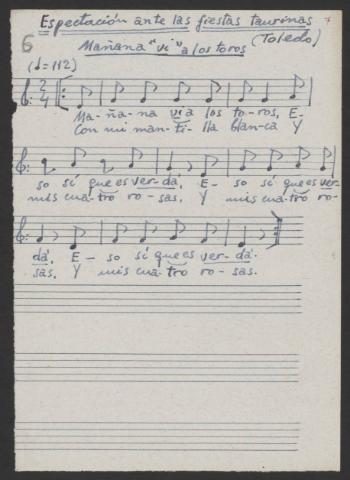 Espectación ante las fiestas taurinas
7
6
Mañana "vi" a los toros
(Toledo)
(♩=112)
2/4
Ma-ña-na vi a los to-ros, E-
Con mi man-ti-lla blan-ca Y
so sí que es ver-dá, E- so sí que es ver-
mis cua-tro ro-sas, Y mis cua-tro ro-
dá, E- so sí que es ver-dá.
sas. Y mis cua-tro ro-sas.